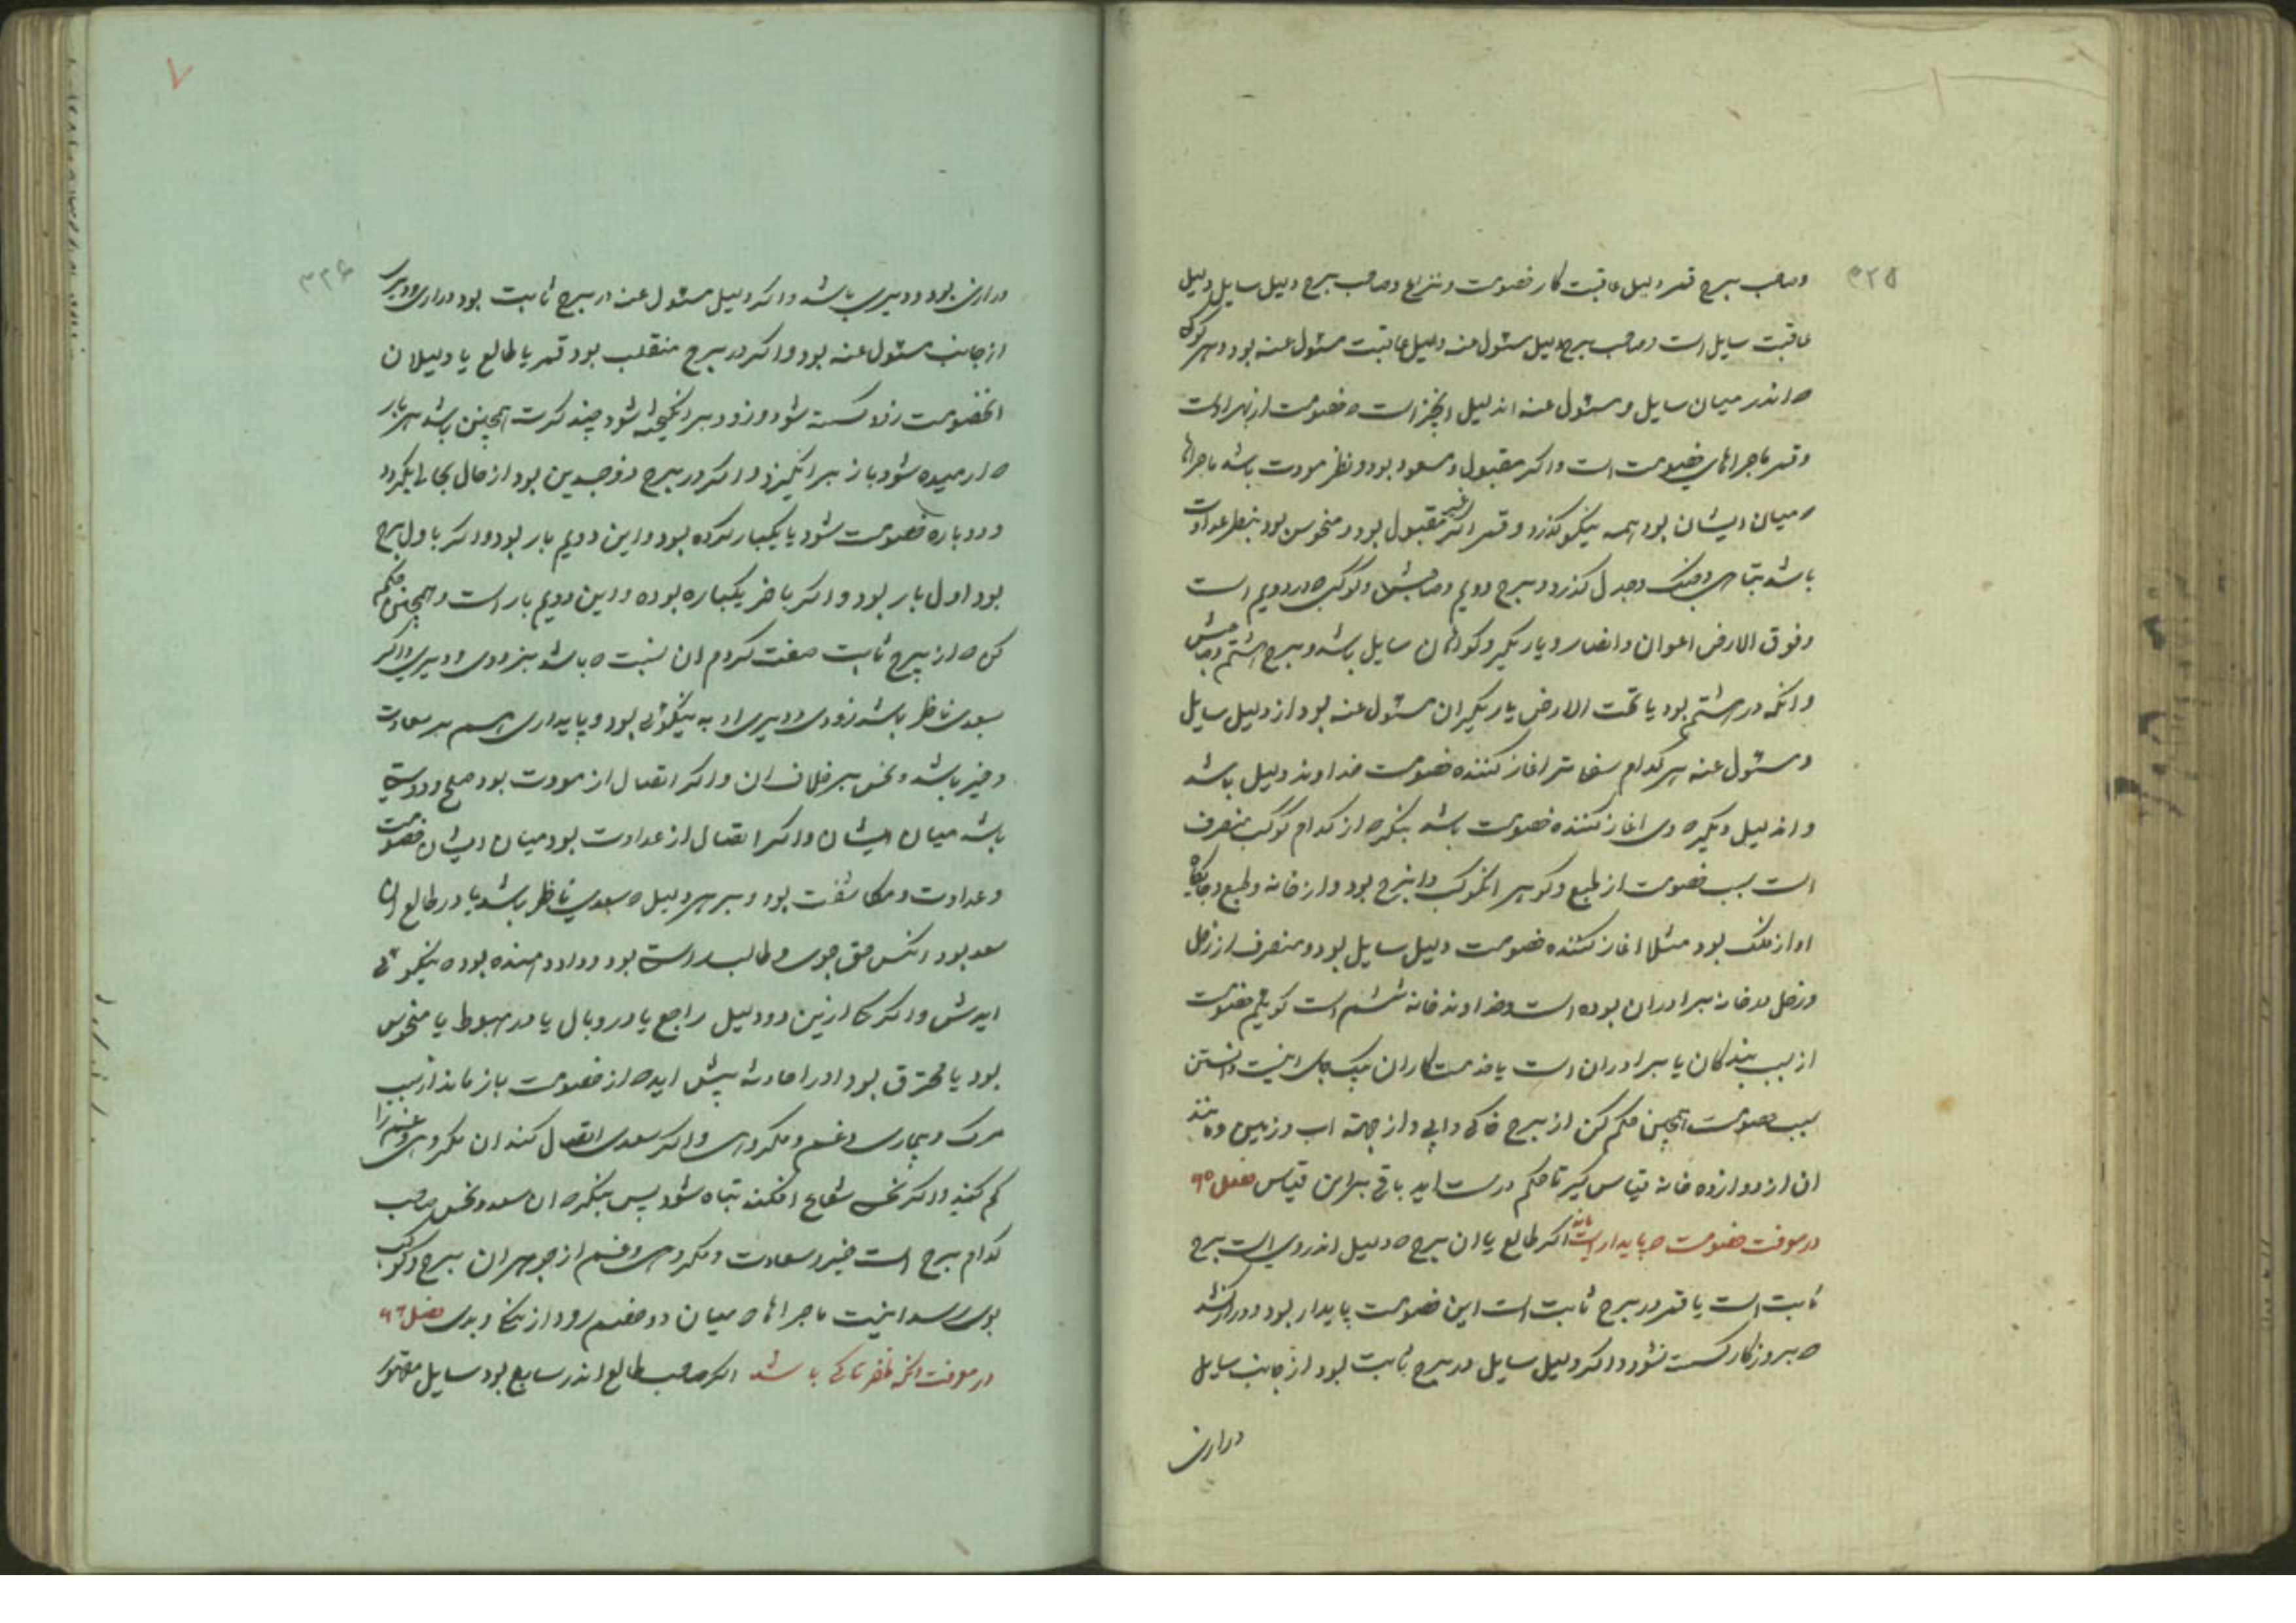 ۳۲۵
وصاحب برج قمر دلیل عاقبت کار خصومت و نزاع وصاحب برج دلیل سایل دلیل
عاقبت سایل است وصاحب برج دلیل مسئول عنه دلیل عاقبت مسئول عنه بود و هر کوکب
که اندر میان سایل و مسئول عنه اندلیل انچیز است که خصومت از بهر اوست
وقمر ماجراهای خصومت است واکر مقبول و مسعود بود و نظر مودت باشد ماجراها
که میان ایشان بود همه نیکو کذرد وقمر اکر غیر مقبول بود و منحوس بود بنظر عداوت
باشد بتباهی وجنک وجدل کذرد وبرج دویم وصاحبش وکوکب که در دویم است
وفوق الارض اعوان وانصار ویاریکر وکواهان سایل باشد وبرج هشتم وصاحبش
وانکه در هشتم بود یا تحت الارض یاریکران مسئول عنه بود از دلیل سایل
ومسئول عنه هر کدام سفلی تر اغاز کننده خصومت خداوند دلیل باشد
واندلیل دیکر که وی اغاز کننده خصومت باشد بنکر که از کدام کوکب منصرف
است سبب خصومت از طبع وکوهر انکوکب وانبرج بود واز خانه وطبع وجایکاه
او از فلک بود مثلا اغاز کننده خصومت دلیل سایل بود ومنصرف از زحل
وزحل در خانه برادران بوده است وخداوند خانه ششم است کوییم خصومت
از سبب بندکان یا برادران است یا خدمتکاران یک جای اینست دانستن
سبب خصومت همچنین حکم کن از برج خاکی وابی واز جهة اب وزمین ومانند
ان از دوازده خانه قیاس کیر تا حکم درست اید باقی براین قیاس فصل ۹۵
در معرفت خصومت که پایدار است یا نه اکر طالع یا ان برج که دلیل اندروی است برج
ثابت است یا قمر در برج ثابت است این خصومت پایدار بود ودراز کشد
که بروزکار کسسته نشود واکر دلیل سایل در برج ثابت بود از جانب سایل
درازی
۳۲۶
درازی بود ودیری باشد واکر دلیل مسئول عنه در برج ثابت بود درازی ودیری
از جانب مسئول عنه بود واکر در برج منقلب بود قمر یا طالع یا دلیلان
انخصومت زود کسسته شود وزود برانکیخته شود چند کرت همچنین باشد هر بار
که ارمیده شود باز برانکیزد واکر در برج ذوجسدین بود از حال بحالی بکردد
ودوباره خصومت شود یا یکبار کرده بود واین دویم بار بود واکر باول برج
بود اول بار بود واکر باخر یکباره بوده واین دویم بار است وهمچنین حکم
کن که از برج ثابت صفت کردم ان نسبت که باشد بزودی ودیری واکر
بسعدی ناظر باشد زودی ودیری او به نیکوئی بود وپایداری هم بر سعادت
وخیر باشد ونحس بر خلاف ان واکر اتصال از مودت بود صلح ودوستی
باشد میان ایشان واکر اتصال از عداوت بود میان ایشان خصومت
وعداوت ومکاشفت بود وبر هر دلیل که سعدی ناظر باشد یا در طالع ان
سعد بود انکس حق جوی وطالب راستی بود وداد دهنده بود که نیکوئی
ایدش واکر یکی ازین دو دلیل راجع یا در وبال یا در هبوط یا منحوس
بود یا محترق بود اورا حادثه پیش اید که از خصومت باز ماند از سبب
مرک وبیماری وغم ومکروهی واکر سعدی اتصال کند ان مکروهی وغم را
کم کند واکر نحس شعاع افکند تباه شود پس بنکر که ان سعد ونحس صاحب
کدام برج است خیر وسعادت ومکروهی وغم از جوهر ان برج وکوکب
بوی رسد اینست ماجراها که میان دو خصم رود از نیک وبدی فصل ۹۶
در معرفت انکه ظفر تا کی باشد اکر صاحب طالع اندر سابع بود سایل مقهور